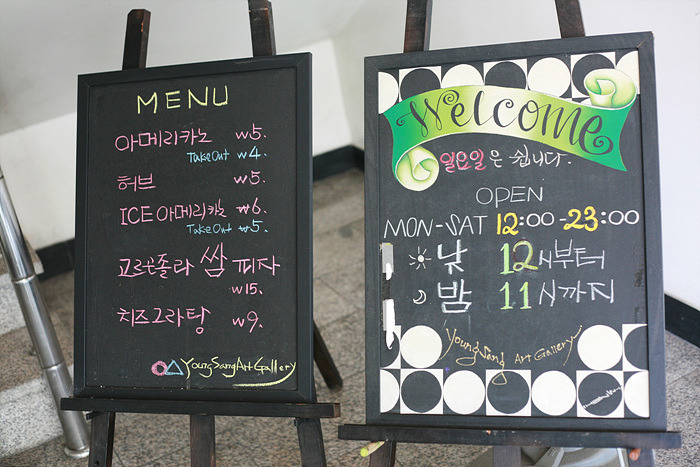 MENU
아메리카노 ₩5.
Take Out ₩4.
허브 ₩5.
ICE 아메리카노 ₩6.
Take Out ₩5.
고르곤졸라 쌈 피자
₩15.
치즈그라탕 ₩9.
YoungSangArtGallery
Welcome
일요일은 쉽니다.
OPEN
MON-SAT 12:00-23:00
낮 12시부터
밤 11시까지
YoungSang Art Gallery
Welcome